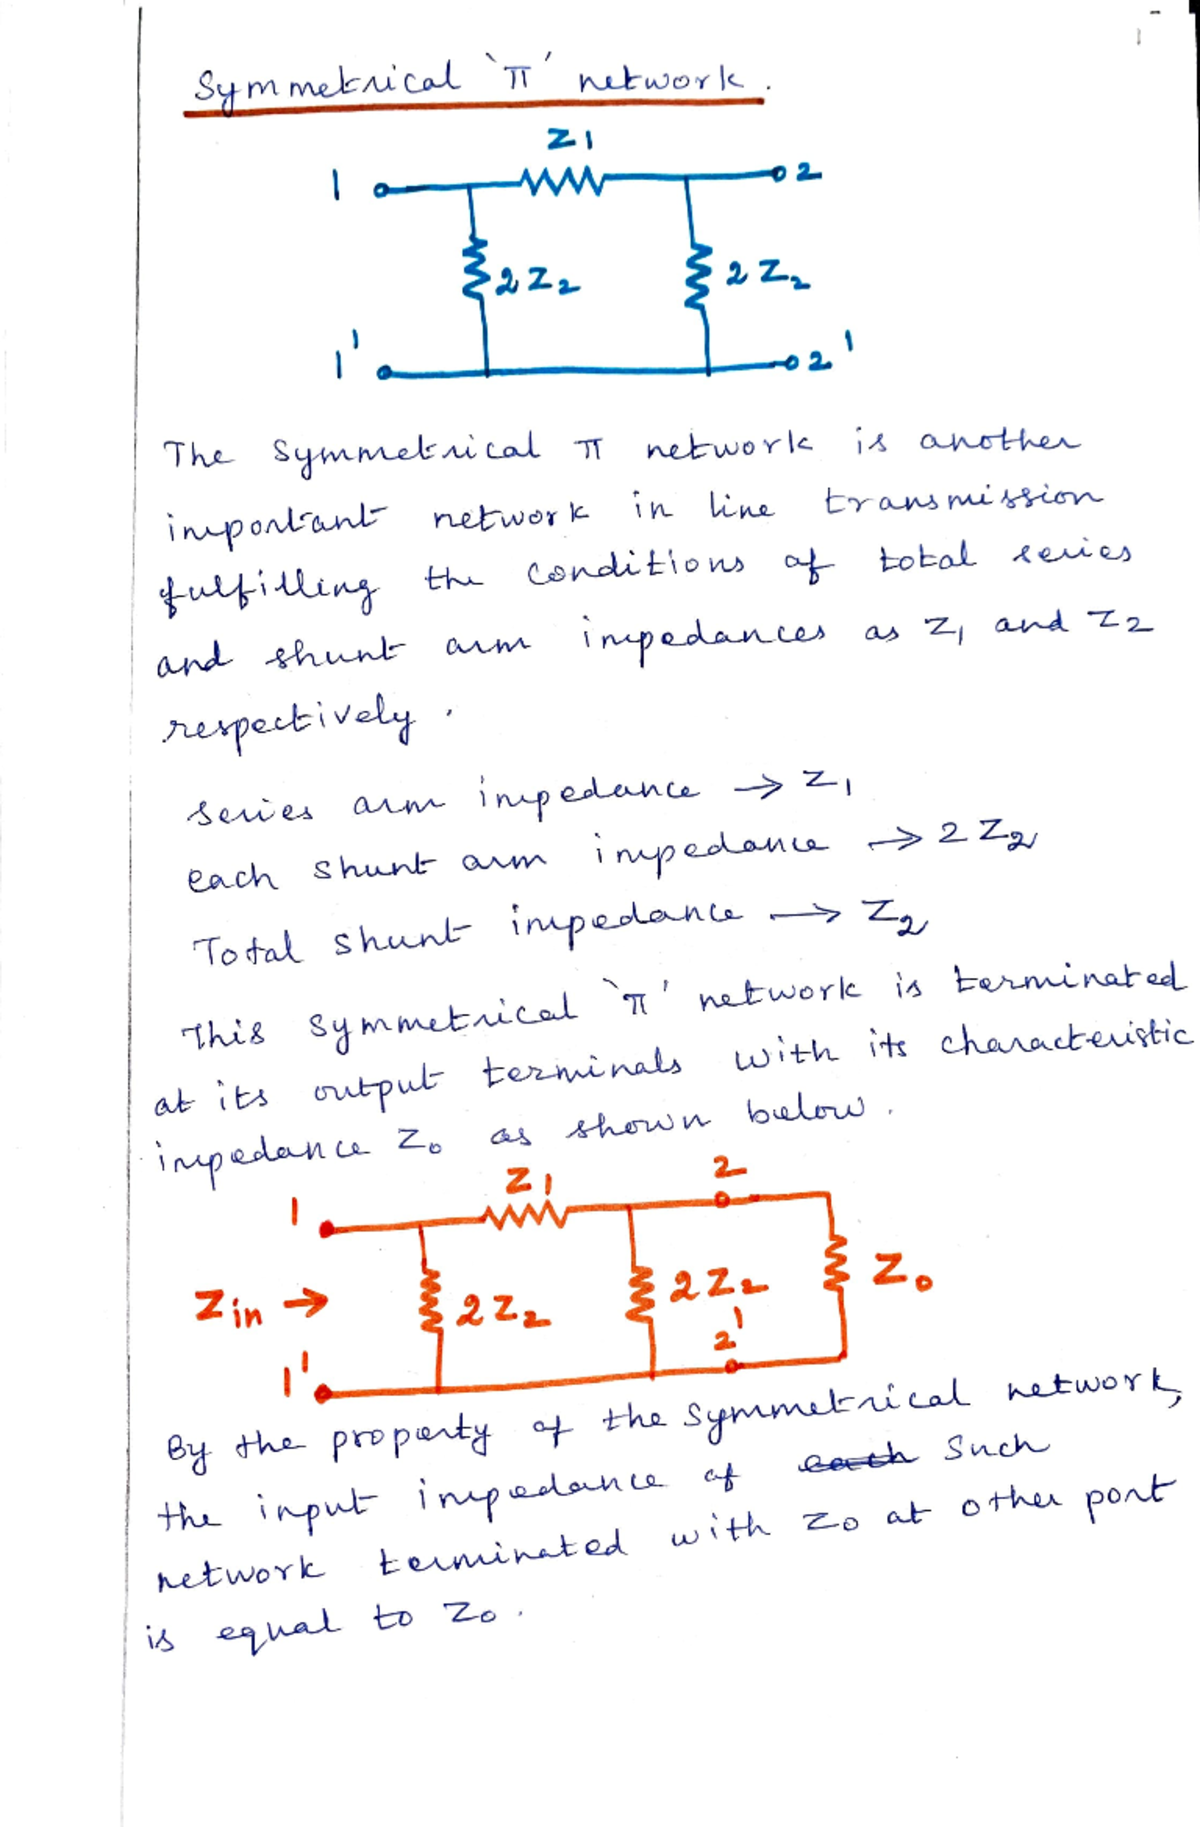 Symmetrical 'π' network.
Z1
1
2
2Z2
2Z2
1'
2'
The symmetrical π network is another
important network in line transmission
fulfilling the conditions of total series
and shunt arm impedances as Z1 and Z2
respectively.
Series arm impedance → Z1
each shunt arm impedance → 2Z2
Total shunt impedance → Z2
This symmetrical 'π' network is terminated
at its output terminals with its characteristic
impedance Z0 as shown below.
Z1
2
1
Zin →
2Z2
2Z2
Z0
2'
1'
By the property of the symmetrical network,
the input impedance of each such
network terminated with Z0 at other port
is equal to Z0.